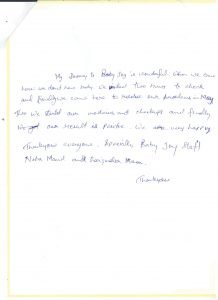 My Journey to Baby Joy is wonderful. When we came
here we don't have baby. We visited five times to check
and finally we came here to resolve our problems in May
this we start our medicines and checkups and finally
we got our result is positive. We are very happy
Thankyou everyone. Specially Baby Joy Staff
Neha Mam and
Thankyou